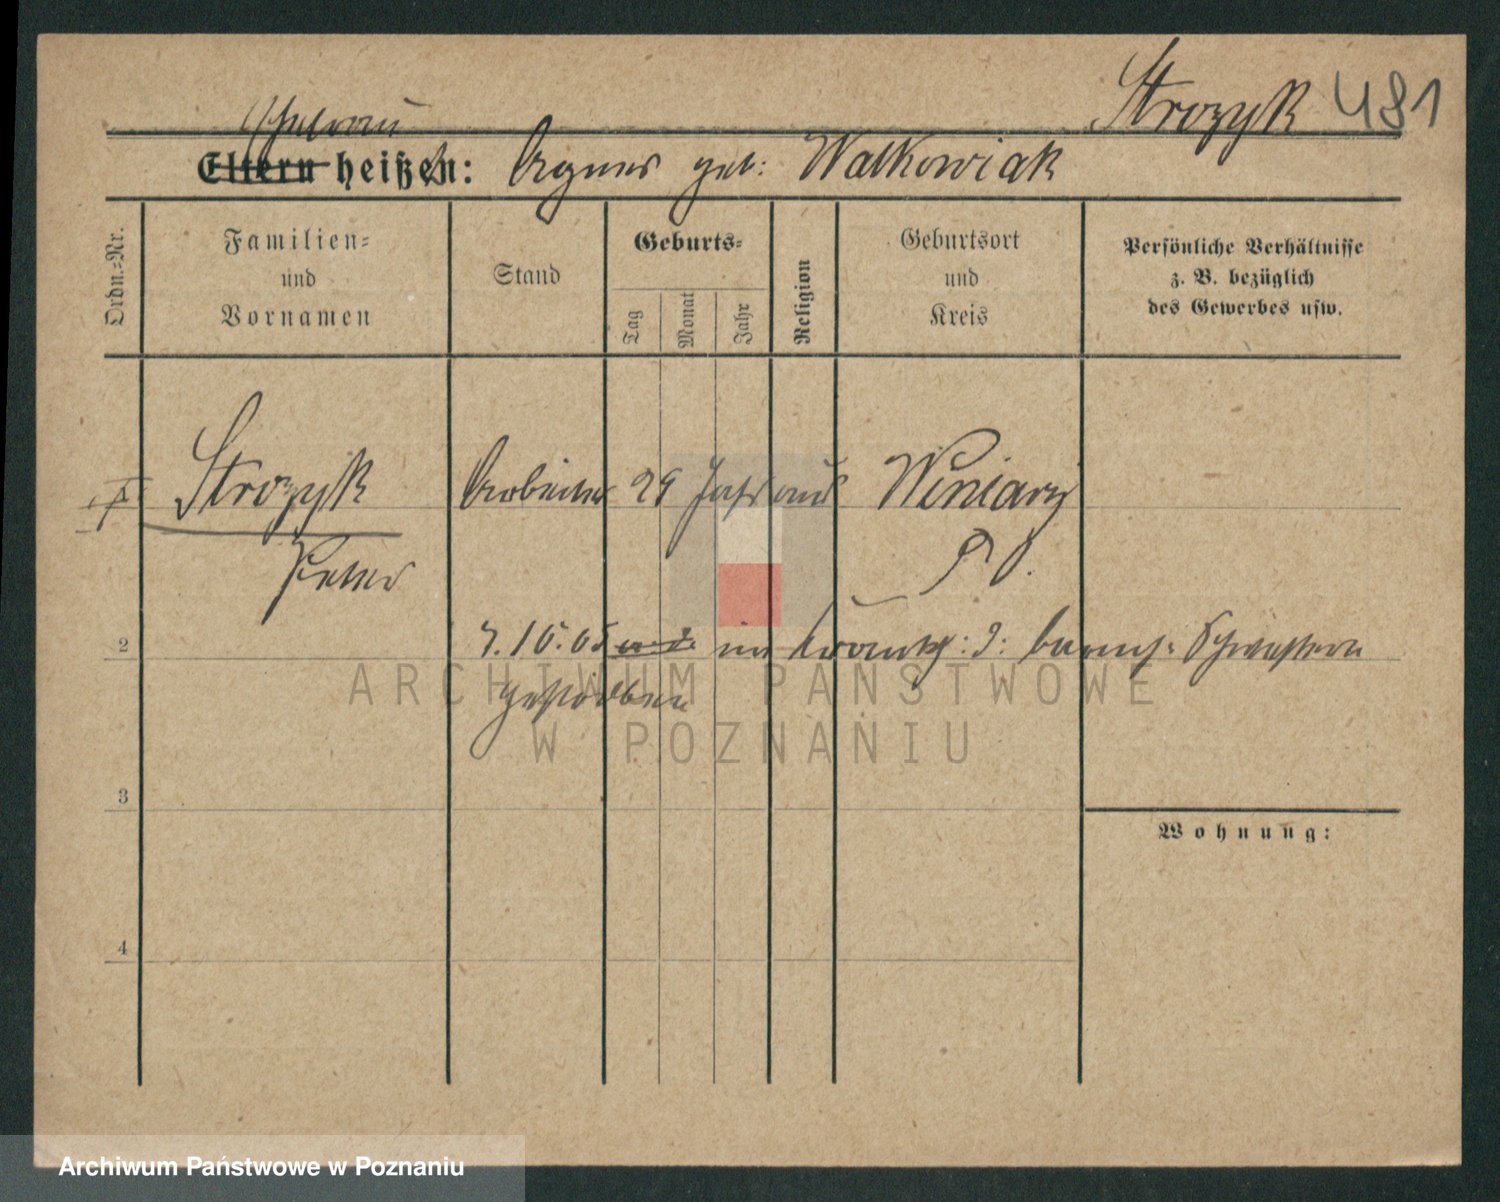 Strozyk 481
Ehefrau
Eltern heißen: Agnes geb: Walkowiak
Ordn.-Nr.
Familien-
und
Vornamen
Stand
Geburts-
Tag
Monat
Jahr
Religion
Geburtsort
und
Kreis
Persönliche Verhältnisse
z. B. bezüglich
des Gewerbes usw.
Strozyk Arbeiter 29 Jahr aus Winiary
Peter
2
im Krankh: d: barmh: Schwestern
gestorben
3
4
Wohnung:
ARCHIWUM PAŃSTWOWE
W POZNANIU
Archiwum Państwowe w Poznaniu